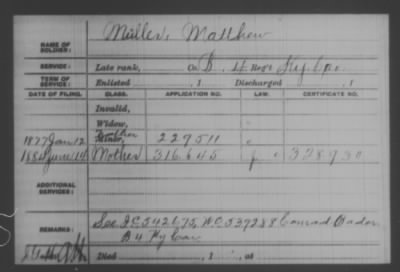 Müller, Matthew
NAME OF SOLDIER:
SERVICE: Late rank, Co. B, 4 Reg't Ky. Cav.
TERM OF SERVICE: Enlisted , 1 Discharged , 1
DATE OF FILING. CLASS. APPLICATION NO. LAW. CERTIFICATE NO.
Invalid,
Widow,
1877 Jan 12 Father Minor, 229511
188 June 14 Mother 316.645 328930
ADDITIONAL SERVICES:
REMARKS: See I.C. 542675, W.C. 539288 Conrad Bader
B 4 Ky Cav
Died , 1 , at